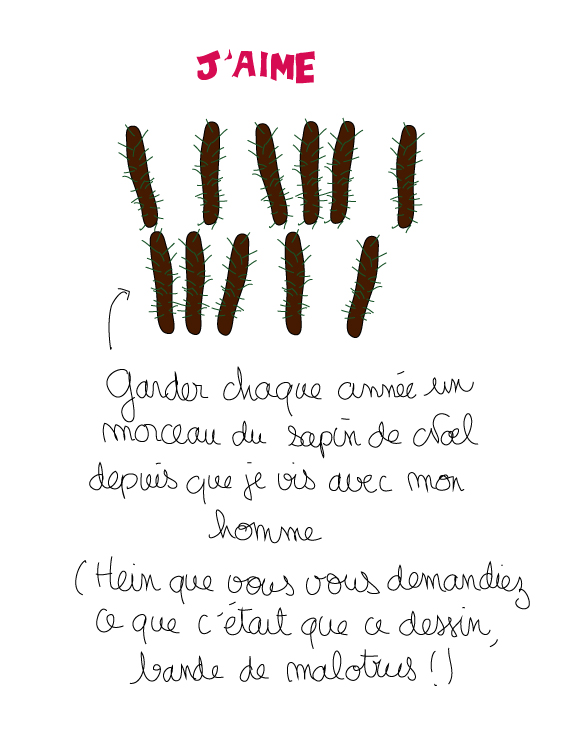 J'AIME
Garder chaque année un
morceau du sapin de Noel
depuis que je vis avec mon
homme
(Hein que vous vous demandiez
ce que c'était que ce dessin,
bande de malotrus !)